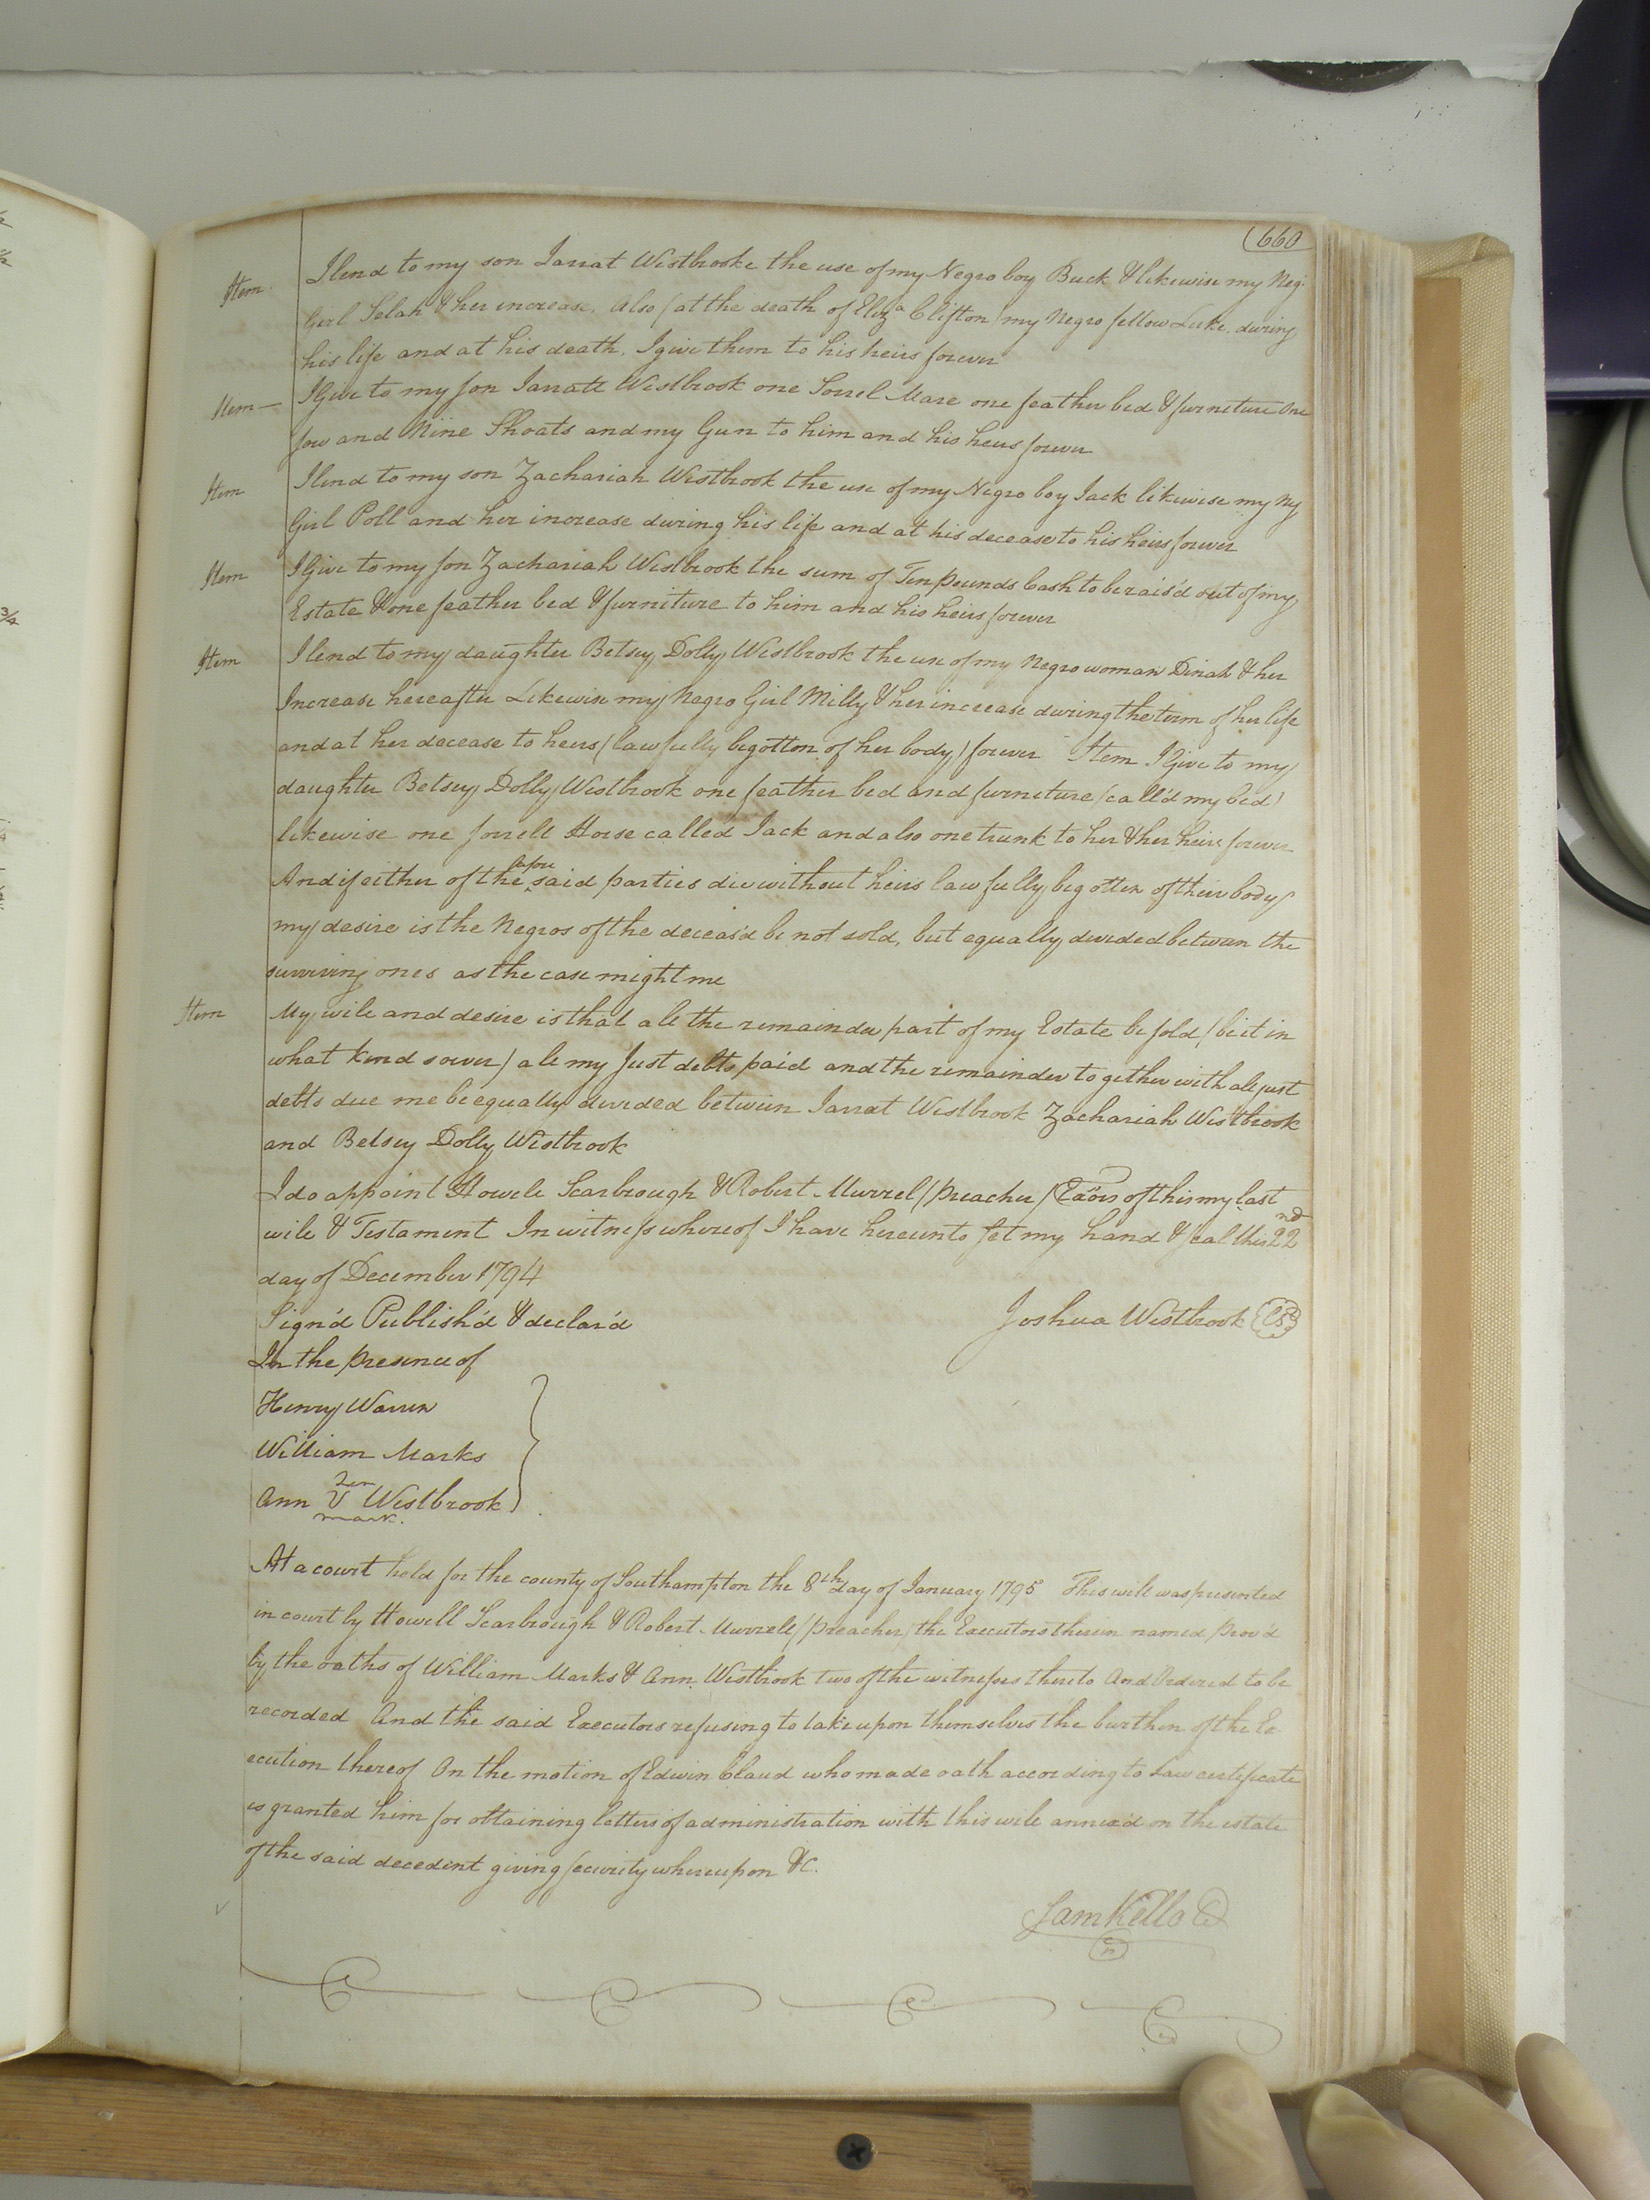 660
Item I lend to my son Jarrat Westbrook the use of my Negro boy Buck & likewise my Neg.
Girl Selah & her increase, Also (at the death of Eliz.a Clifton) my Negro fellow Luke, during
his life and at his death, I give them to his heirs forever
Item — I Give to my son Jarratt Westbrook one Sorrel Mare one feather bed & furniture One
Sow and Nine Shoats and my Gun to him and his heirs forever
Item I lend to my son Zachariah Westbrook the use of my Negro boy Jack likewise my Neg
Girl Poll and her increase during his life and at his decease to his heirs forever
Item I Give to my son Zachariah Westbrook the sum of Ten pounds Cash to be rais'd out of my
Estate & one feather bed & furniture to him and his heirs forever
Item I lend to my daughter Betsey Dolly Westbrook the use of my Negro woman Dinah & her
Increase hereafter Likewise my Negro Girl Milly & her increase during the term of her life
and at her decease to heirs (lawfully begotton of her body) forever Item I Give to my
daughter Betsey Dolly Westbrook one feather bed and furniture (call'd my bed)
likewise one sorrell Horse called Jack and also one trunk to her & her heirs forever
And if either of the afore said parties die without heirs lawfully begotten of their body
my desire is the Negros of the deceas'd be not sold, but equally divided between the
surviving ones as the case might me
Item My will and desire is that all the remainder part of my Estate be sold, (be it in
what kind soever) all my Just debts paid and the remainder together with all just
debts due me be equally divided between Jarrat Westbrook Zachariah Westbrook
and Betsey Dolly Westbrook
I do appoint Howell Scarbrough & Robert Murrel (preacher) Exors of this my last
will & Testament In witness whereof I have hereunto set my hand & seal this 22nd
day of December 1794
Sign'd Publish'd & declar'd Joshua Westbrook LS
In the presence of
Henry Warren
William Marks
her
Ann V Westbrook
mark.
At a court held for the county of Southampton the 8th day of January 1795 This will was presented
in court by Howell Scarbrough & Robert Murrell (preacher) the Executors therein named prov'd
by the oaths of William Marks & Ann Westbrook two of the witnesses thereto And Ordered to be
recorded And the said Executors refusing to take upon themselves the burthen of the Ex-
ecution thereof On the motion of Edwin Claud who made oath according to Law certificate
is granted him for obtaining letters of administration with this will annex'd on the estate
of the said decedent giving security whereupon &C.
Sam Kello